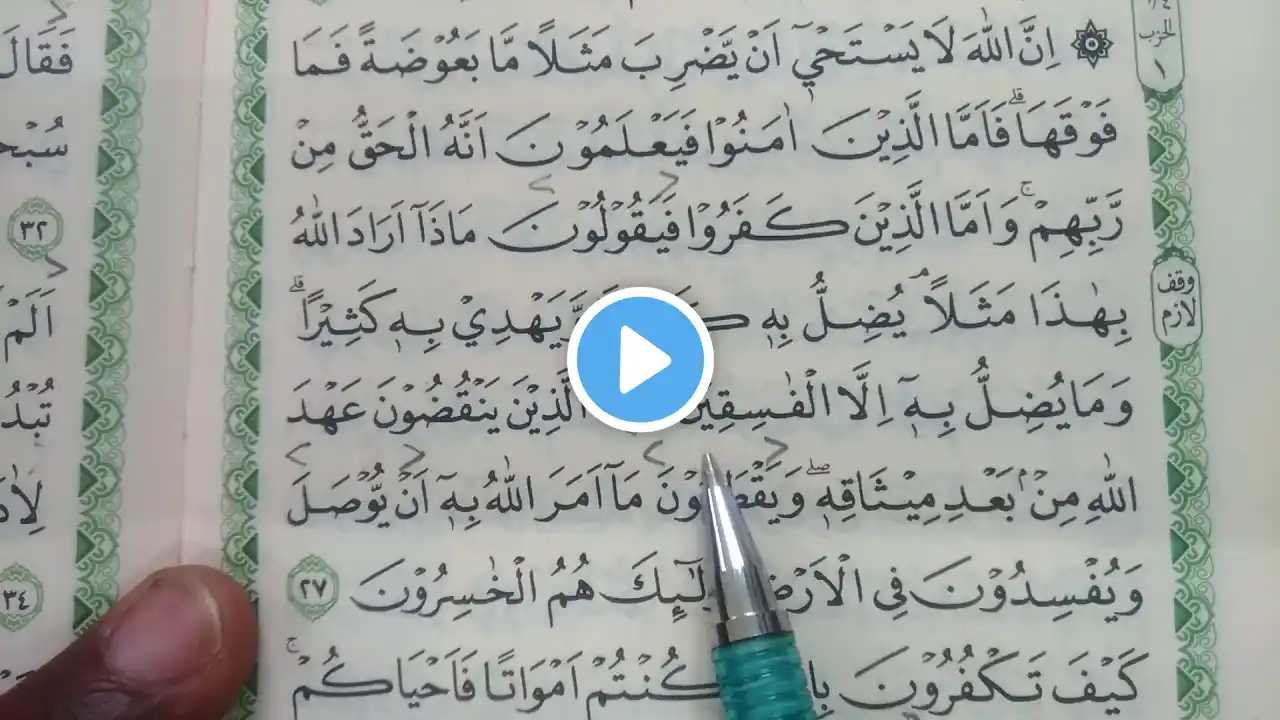 اِنَّ اللّٰهَ لَا يَسْتَحْيٖٓ اَنْ يَّضْرِبَ مَثَلًا مَّا بَعُوْضَةً فَمَا
فَوْقَهَاۗ فَاَمَّا الَّذِيْنَ اٰمَنُوْا فَيَعْلَمُوْنَ اَنَّهُ الْحَقُّ مِنْ
رَّبِّهِمْۚ وَاَمَّا الَّذِيْنَ كَفَرُوْا فَيَقُوْلُوْنَ مَاذَآ اَرَادَ اللّٰهُ
بِهٰذَا مَثَلًاۘ يُضِلُّ بِهٖ وَّيَهْدِيْ بِهٖ كَثِيْرًاۗ
وَمَا يُضِلُّ بِهٖٓ اِلَّا الْفٰسِقِيْنَ الَّذِيْنَ يَنْقُضُوْنَ عَهْدَ
اللّٰهِ مِنْۢ بَعْدِ مِيْثَاقِهٖۖ وَيَقْطَعُوْنَ مَآ اَمَرَ اللّٰهُ بِهٖٓ اَنْ يُّوْصَلَ
وَيُفْسِدُوْنَ فِى الْاَرْضِ اُولٰۤىِٕكَ هُمُ الْخٰسِرُوْنَ ٢٧
كَيْفَ تَكْفُرُوْنَ وَكُنْتُمْ اَمْوَاتًا فَاَحْيَاكُمْۚ
الحزب
١
وقف
لازم
فَقَالَ
٣٢
اَلَمْ
٣٤